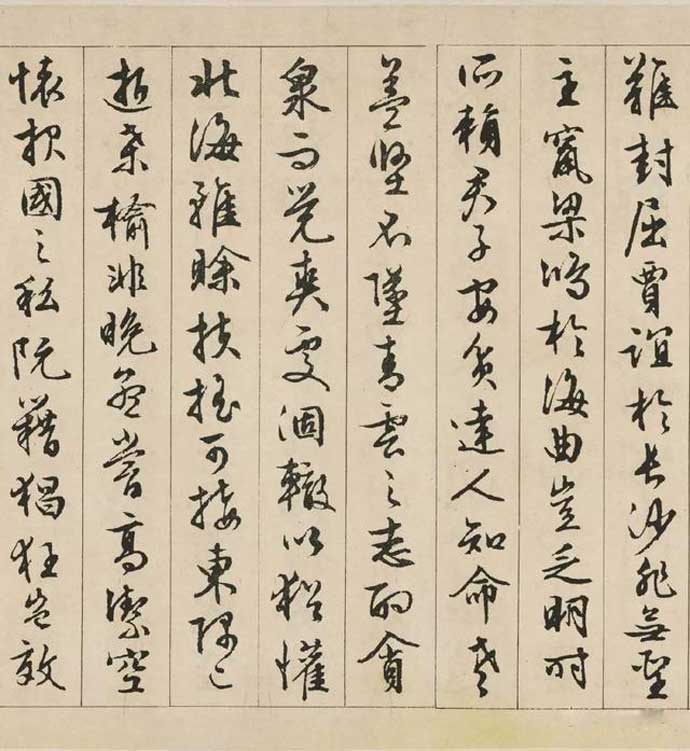 難封屈賈誼於長沙非無聖
主竄梁鴻於海曲豈乏明时
所賴君子安貧達人知命老
益堅不墜青雲之志酌貪
泉而覺爽處涸轍以猶懽
北海雖賒扶搖可接東隅已
逝桑榆非晚孟嘗高潔空
懷報國之私阮籍猖狂豈效